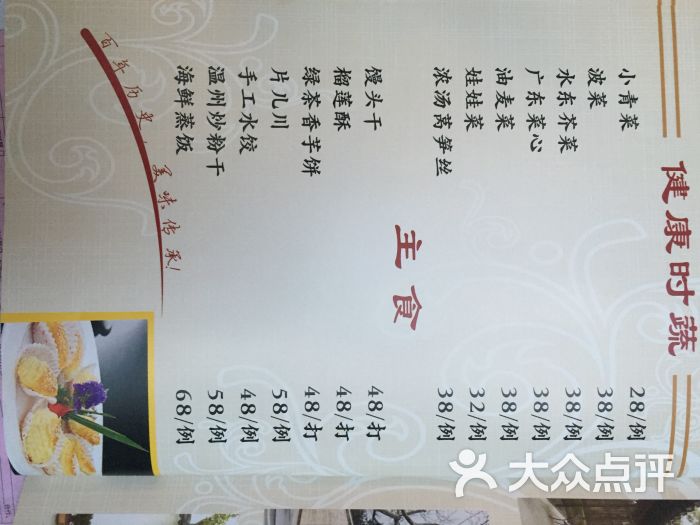 健康时蔬
小青菜 28/例
波菜 38/例
水东芥菜 38/例
广东菜心 38/例
油麦菜 38/例
娃娃菜 32/例
浓汤莴笋丝 38/例
主食
馒头干 48/打
榴莲酥 48/打
绿茶香芋饼 48/打
片儿川 58/例
手工水饺 48/例
温州炒粉干 58/例
海鲜蒸饭 68/例
百年历史, 美味传承!
大众点评